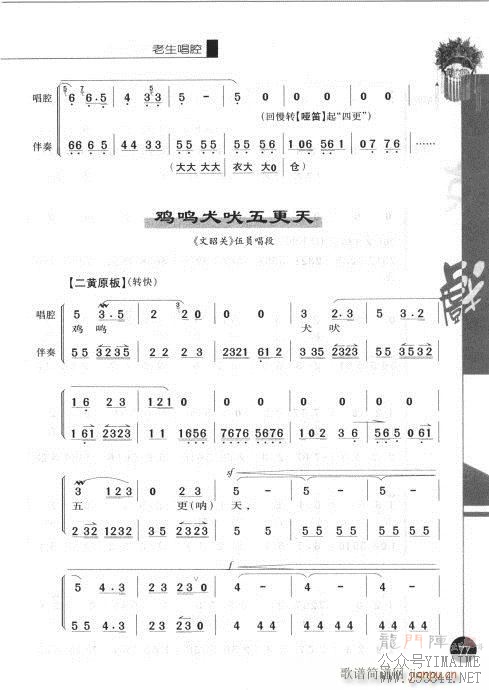 老生唱腔
唱腔 6 6·5 | 4 3 3 | 5 - | 5 0 | 0 0 | 0 0 |
(回慢转【哑笛】起“四更”)
伴奏 66 6 5 | 44 33 | 55 55 | 55 56 | 106 561 | 07 76 | ……
(大大 大大 衣大 大0 仓)
鸡鸣犬吠五更天
《文昭关》伍员唱段
【二黄原板】(转快)
唱腔 5 3·5 | 2 2 0 | 0 0 | 3 2·3 | 5 3·2 |
鸡 鸣 犬 吠
伴奏 55 3235 | 22 22 | 2321 61 2 | 3 35 2323 | 55 3532 |
1 6 2 3 | 121 0 | 0 0 | 0 0 | 0 0 |
1 61 2323 | 11 1656 | 7676 5676 | 102 36 | 565 061 |
sf
3 123 | 0 23 0 | 5 - | 5 - | 5 - |
五 更(呐) 天,
2 32 1232 | 35 2323 | 55 55 | 55 55 | 55 55 |
sf
5 4·3 | 2 3 23 0 | 4 - | 4 - | 4 - |
5 5 4·3 | 2 3 23 0 | 44 44 | 44 44 | 44 44 |
龍門陣
77
公众号YIMAIME
歌谱简谱网
jianpu.cn